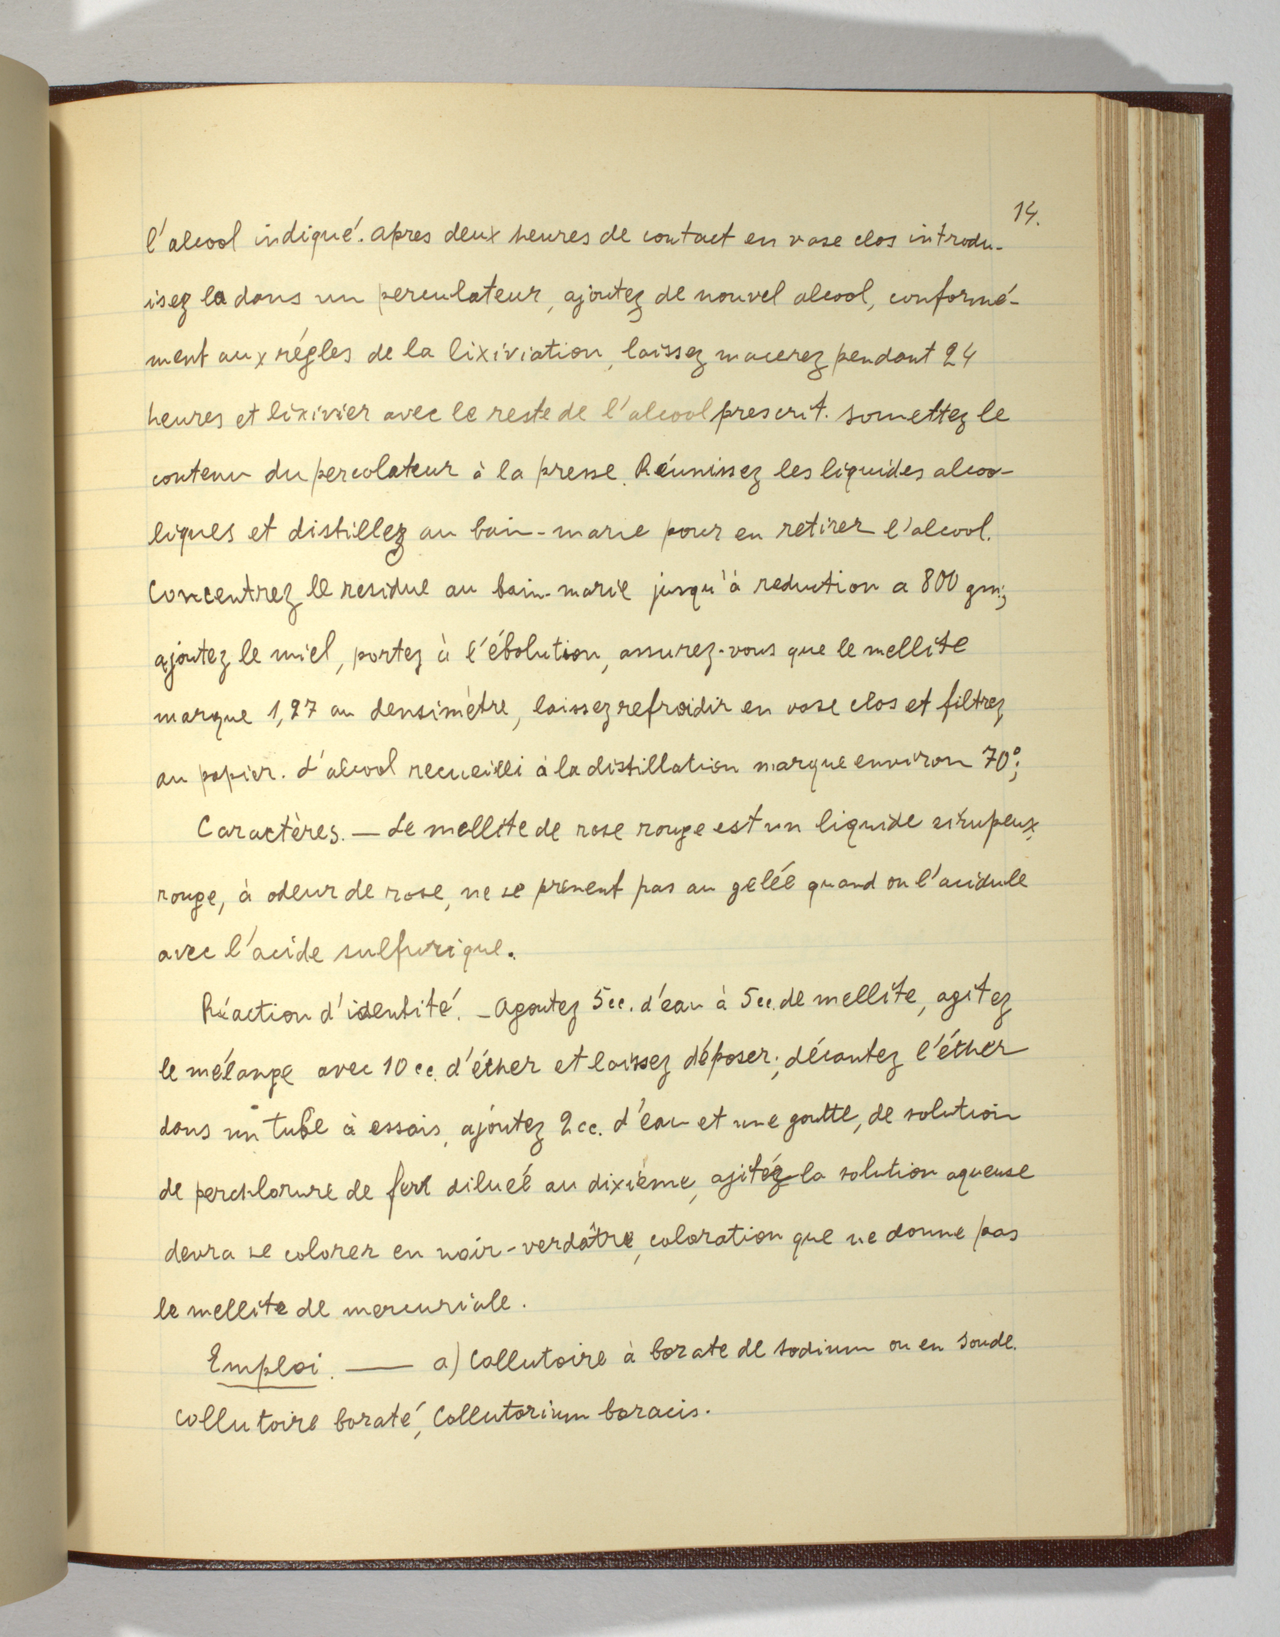 14.
l'alcool indiqué. après deux heures de contact en vase clos introdu-
isez la dans un perculateur, ajoutez de nouvel alcool, conformé-
ment aux régles de la lixiviation, laissez macerez pendant 24
heures et lixivier avec le reste de l'alcool prescrit. somettez le
contenu du percolateur à la presse. Réunissez les liquides alcoo-
liques et distillez au bain-marie pour en retirer l'alcool.
Concentrez le residue au bain-marie jusqu'à reduction a 800 gm;
ajoutez le miel, portez à l'ébolution, assurez-vous que le mellite
marque 1,27 au densimètre, laissez refroidir en vase clos et filtrez
au papier. L'alcool recueilli à la distillation marque environ 70°;
Caractères. — Le mellite de rose rouge est un liquide sirupeux,
rouge, à odeur de rose, ne se prenent pas au gelée quand on l'acidule
avec l'acide sulfurique.
Réaction d'identité. — Agoutez 5 cc. d'eau à 5 cc. de mellite, agitez
le mélange avec 10 cc. d'éther et laissez déposer; décantez l'éther
dans un tube à essais, ajoutez 2 cc. d'eau et une goutte, de solution
de perchlorure de fer diluéé au dixième, agitéz la solution aqueuse
devra se colorer en noir-verdâtre, coloration que ne donne pas
le mellite de mercuriale.
Emploi. — a) Collutoire à borate de sodium ou en soude.
collutoire boraté, Collutorium boracis.